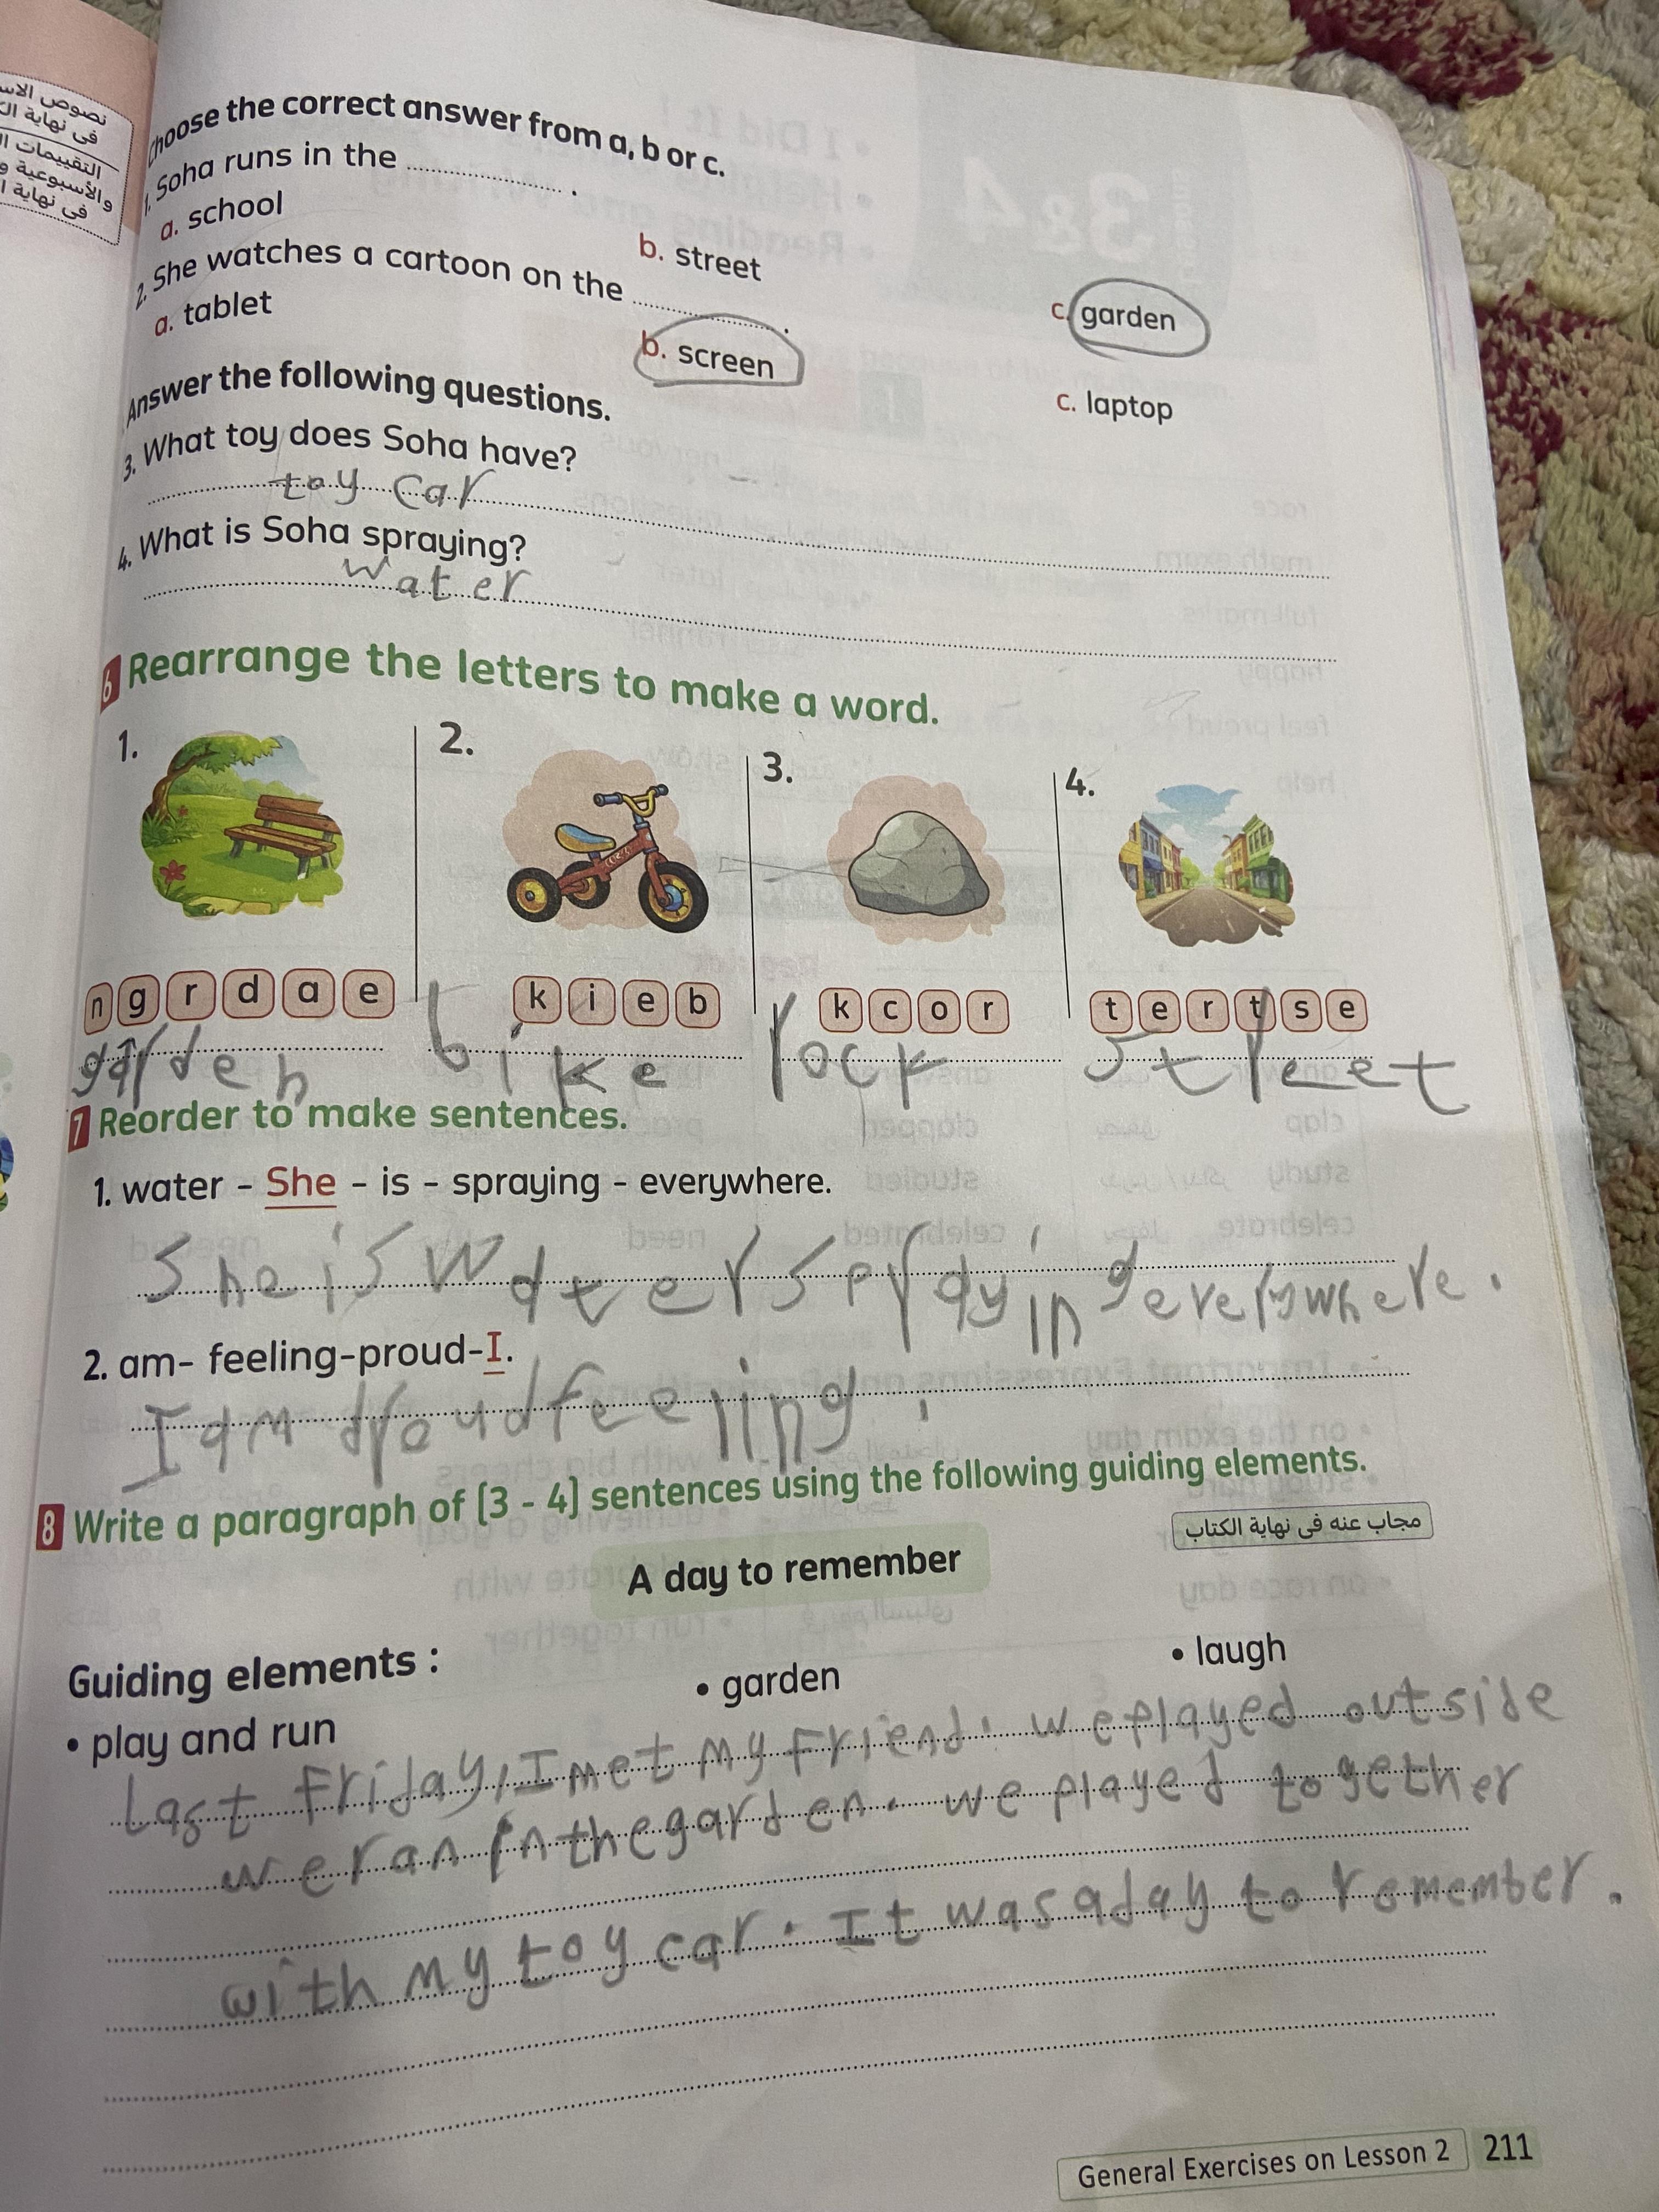 نصوص الاس
فى نهاية ال
التقييمات ا
والأسبوعية و
فى نهاية ا
hoose the correct answer from a, b or c.
1. Soha runs in the .
a. school
b. street
c. garden
2. She watches a cartoon on the .
a. tablet
b. screen
c. laptop
Answer the following questions.
3. What toy does Soha have?
toy car
4. What is Soha spraying?
water
6 Rearrange the letters to make a word.
1. 2. 3. 4.
n g r d a e k i e b k c o r t e r t s e
garden bike rock street
7 Reorder to make sentences.
1. water - She - is - spraying - everywhere.
She is water sprdying everywhere.
2. am- feeling-proud-I.
I am proud feeling.
8 Write a paragraph of (3 - 4) sentences using the following guiding elements.
مجاب عنه فى نهاية الكتاب
A day to remember
Guiding elements :
• play and run
• garden
• laugh
Last Friday, I met my Friend. we played outside
we ran in the garden. we played together
with my toy car. It was a day to remember.
General Exercises on Lesson 2 211